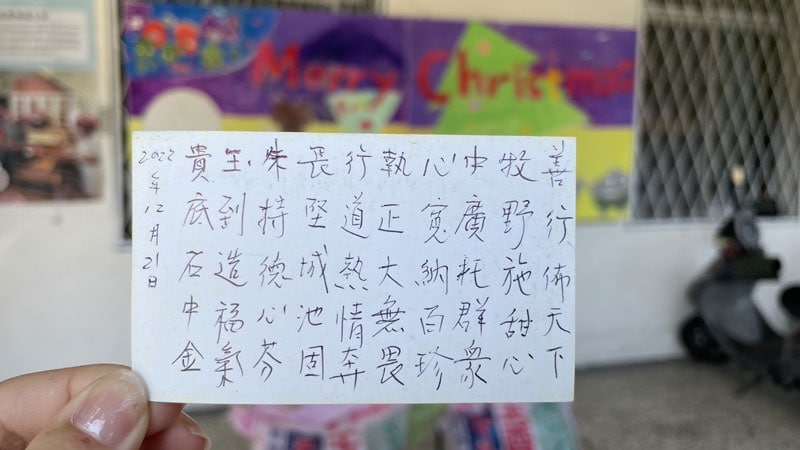 Merry Christmas
善行佈天下
牧野施甜心
中廣托群衆
心寬納百珍
執正大無畏
行道熱情奔
長堅城池固
朱持德心芬
玉到造福氣
貴底石中金
2022年12月21日